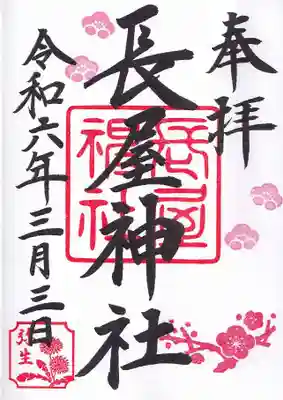 奉拝
長屋神社
令和六年三月三日
弥生